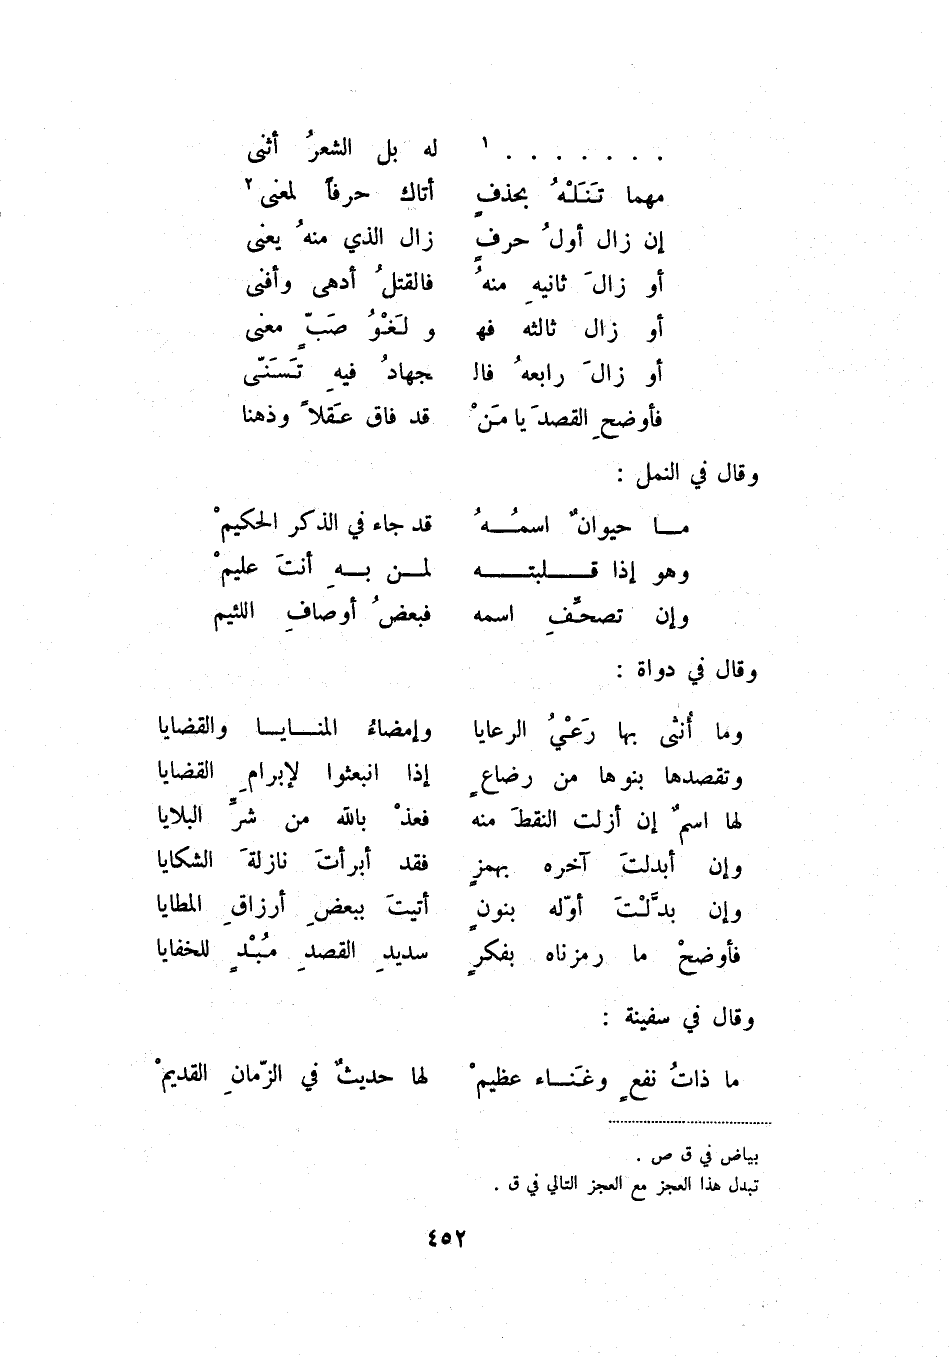 . . . . . . . ١ له بل الشعرُ أثنى
مهما تَنَلْهُ بحذفٍ أتاك حرفاً لمعنى ٢
إن زال أولُ حرفٍ زال الذي منهُ يعنى
أو زالَ ثانيهِ منهُ فالقتلُ أدهى وأفنى
أو زال ثالثه فهـ و لَغْوُ صَبٍّ معنى
أو زالَ رابعهُ فالـ ـجهادُ فيهِ تَسَنّى
فأوضحِ القصدَ يا مَنْ قد فاق عَقلاً وذهنا
وقال في النمل :
مـا حيوانٌ اسمُـهُ قد جاء في الذكر الحكيمْ
وهو إذا قـلبتـه لمـن بـهِ أنتَ عليمْ
وإن تصحّفِ اسمه فبعضُ أوصافِ اللئيم
وقال في دواة :
وما أُنثى بها رَعْيُ الرعايا وإمضاءُ المنـايـا والقضايا
وتقصدها بنوها من رضاعٍ إذا انبعثوا لإبرامِ القضايا
لها اسمٌ إن أزلت النقطَ منه فعذْ بالله من شرِّ البلايا
وإن أبدلتَ آخره بهمزٍ فقد أبرأتَ نازلةَ الشكايا
وإن بدَّلْتَ أوّله بنونٍ أتيتَ ببعضِ أرزاقِ المطايا
فأوضحْ ما رمزناه بفكرٍ سديدِ القصدِ مُبْدٍ للخفايا
وقال في سفينة :
ما ذاتُ نفعٍ وغَنـاء عظيمْ لها حديثٌ في الزّمانِ القديمْ
بياض في ق ص .
تبدل هذا العجز مع العجز التالي في ق .
٤٥٢